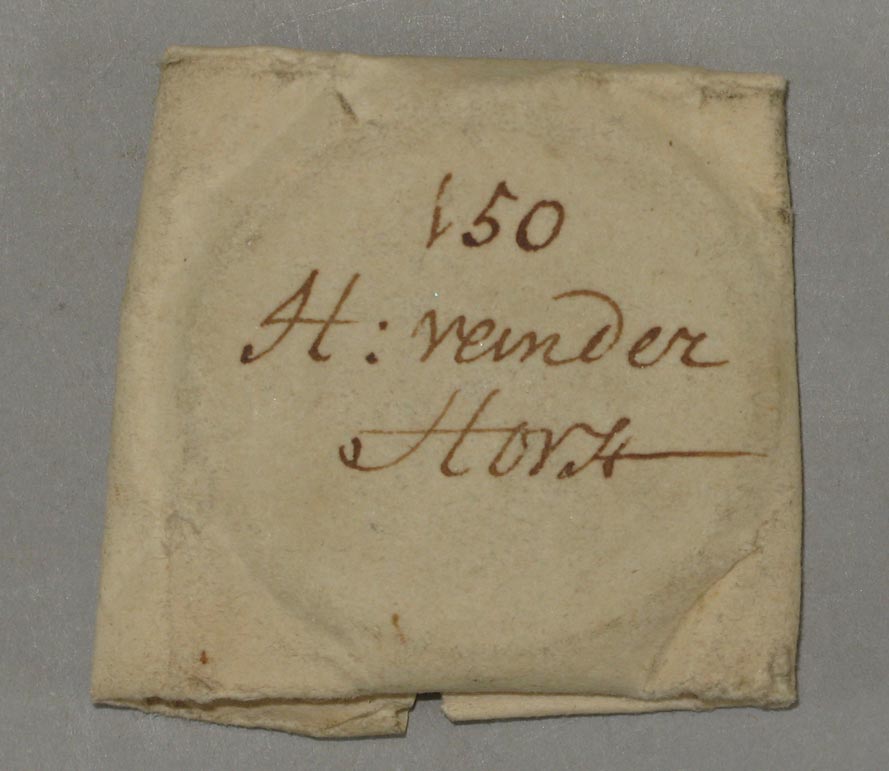 150
H: reinder
Horst